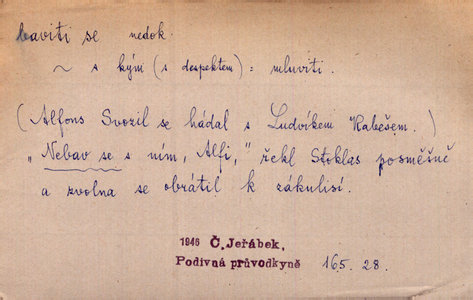 baviti se nedok.
~ s kým (s despektem) = mluviti.
(Alfons Svozil se hádal s Ludvíkem Rabešem.)
„Nebav se s ním, Alfi," řekl Stoklas posměšně
a zvolna se obrátil k zákulisí.
1946 Č. Jeřábek,
Podivná průvodkyně 165. 28.